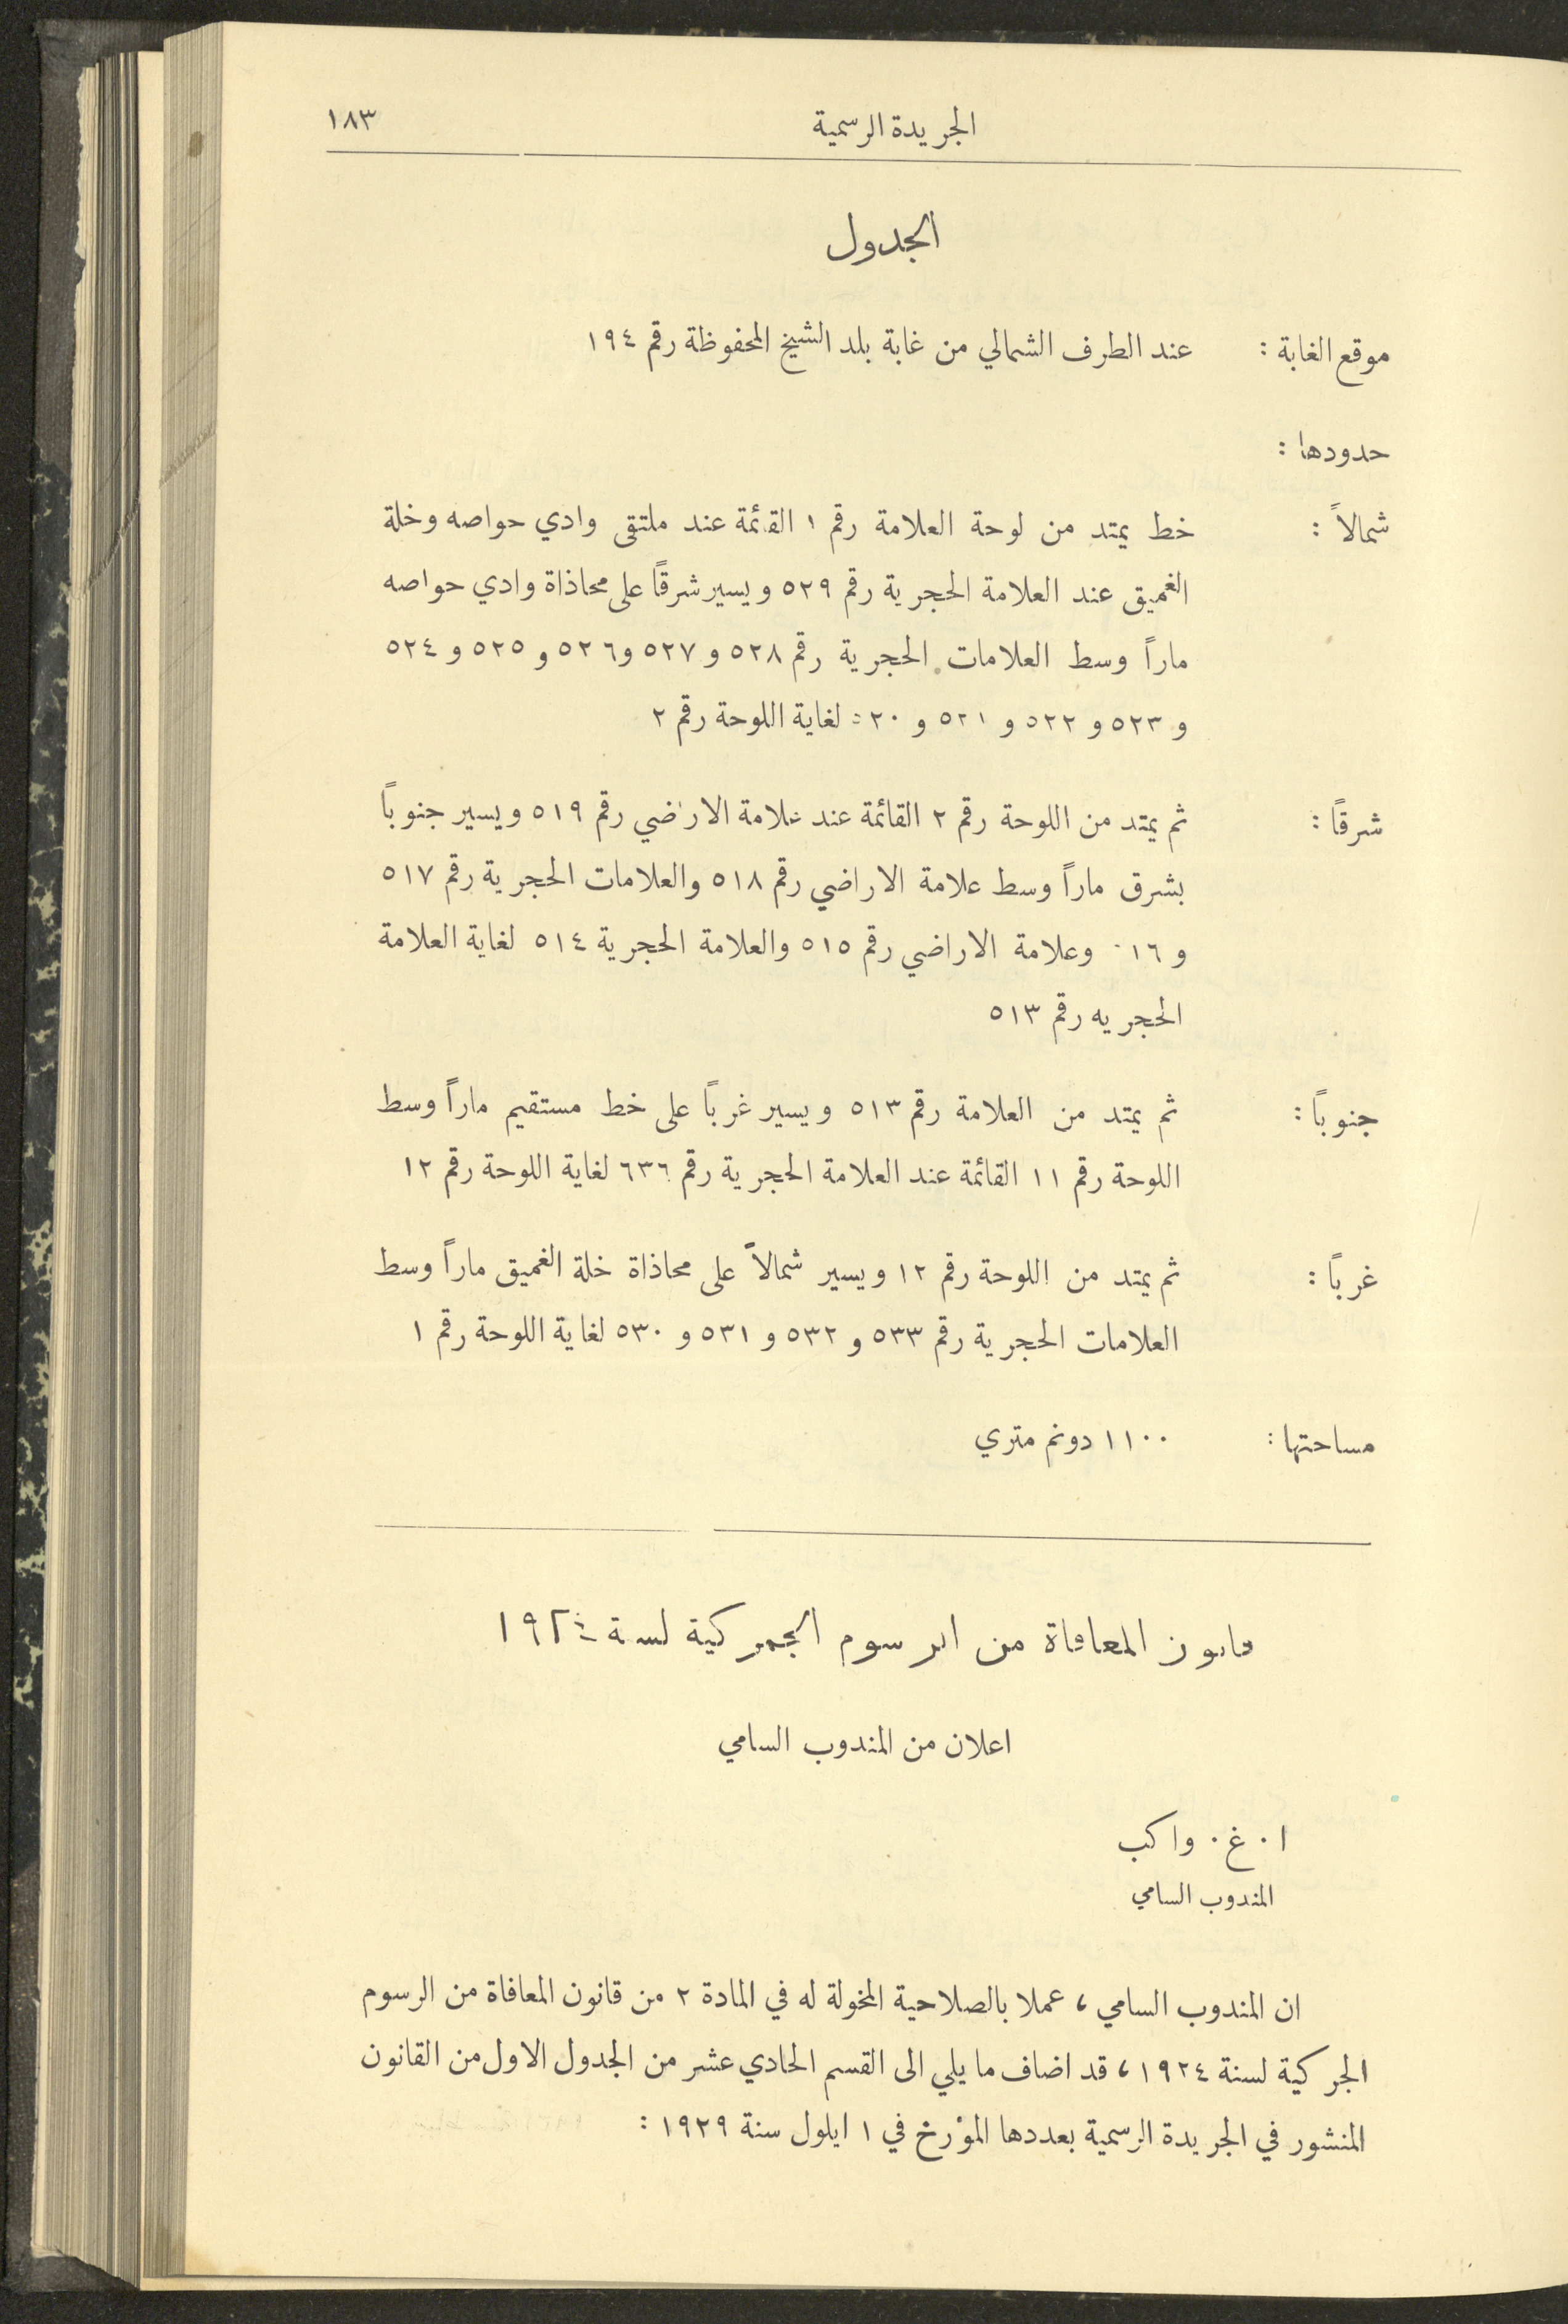 الجريدة الرسمية ١٨٣
الجدول
موقع الغابة : عند الطرف الشمالي من غابة بلد الشيخ المحفوظة رقم ١٩٤
حدودها :
شمالاً : خط يمتد من لوحة العلامة رقم ١ القائمة عند ملتقى وادي حواصه وخلة
الغميق عند العلامة الحجرية رقم ٥٢٩ ويسير شرقاً على محاذاة وادي حواصه
ماراً وسط العلامات الحجرية رقم ٥٢٨ و ٥٢٧ و٥٢٦ و ٥٢٥ و ٥٢٤
و ٥٢٣ و ٥٢٢ و ٥٢١ و ٥٢٠ لغاية اللوحة رقم ٢
شرقاً : ثم يمتد من اللوحة رقم ٢ القائمة عند علامة الاراضي رقم ٥١٩ ويسير جنوباً
بشرق ماراً وسط علامة الاراضي رقم ٥١٨ والعلامات الحجرية رقم ٥١٧
و ٥١٦ وعلامة الاراضي رقم ٥١٥ والعلامة الحجرية ٥١٤ لغاية العلامة
الحجريه رقم ٥١٣
جنوباً : ثم يمتد من العلامة رقم ٥١٣ ويسير غرباً على خط مستقيم ماراً وسط
اللوحة رقم ١١ القائمة عند العلامة الحجرية رقم ٦٣٦ لغاية اللوحة رقم ١٢
غرباً : ثم يمتد من اللوحة رقم ١٢ ويسير شمالاً على محاذاة خلة الغميق ماراً وسط
العلامات الحجرية رقم ٥٣٣ و ٥٣٢ و ٥٣١ و ٥٣٠ لغاية اللوحة رقم ١
مساحتها : ١١٠٠ دونم متري
قانون المعافاة من الرسوم الجمركية لسنة ١٩٢٤
اعلان من المندوب السامي
ا . غ . واكب
المندوب السامي
ان المندوب السامي ، عملا بالصلاحية المخولة له في المادة ٢ من قانون المعافاة من الرسوم
الجركية لسنة ١٩٢٤ ، قد اضاف ما يلي الى القسم الحادي عشر من الجدول الاول من القانون
المنشور في الجريدة الرسمية بعددها المؤرخ في ١ ايلول سنة ١٩٢٩ :